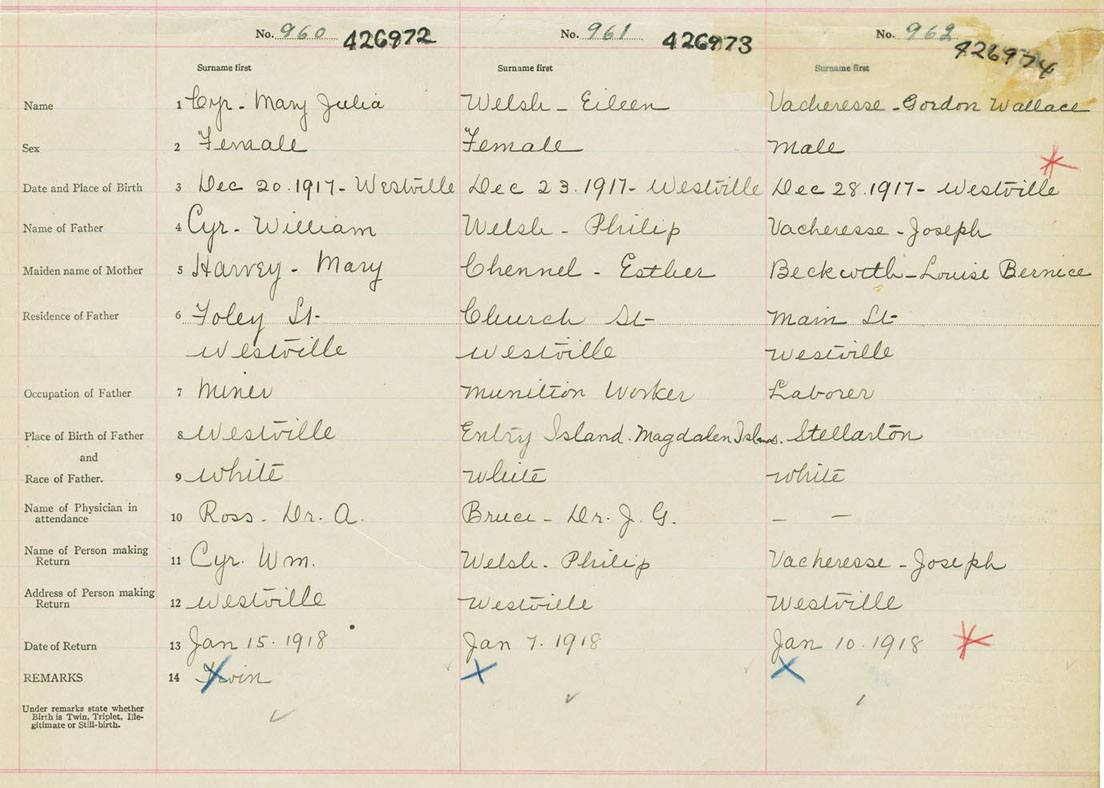 No. 960 426972 No. 961 426973 No. 962 426974
Surname first Surname first Surname first
Name 1 Cyr - Mary Julia Welsh - Eileen Vacheresse - Gordon Wallace
Sex 2 Female Female Male
Date and Place of Birth 3 Dec 20. 1917 - Westville Dec 23. 1917 - Westville Dec 28. 1917 - Westville
Name of Father 4 Cyr - William Welsh - Philip Vacheresse - Joseph
Maiden name of Mother 5 Harvey - Mary Chennel - Esther Beckwith - Louise Bernice
Residence of Father 6 Foley St - Church St - Main St -
Westville Westville Westville
Occupation of Father 7 Miner Munition Worker Laborer
Place of Birth of Father 8 Westville Entry Island. Magdalen Islns. Stellarton
and
Race of Father. 9 White White White
Name of Physician in
attendance 10 Ross - Dr. A. Bruce - Dr. J. G. - -
Name of Person making
Return 11 Cyr. Wm. Welsh - Philip Vacheresse - Joseph
Address of Person making
Return 12 Westville Westville Westville
Date of Return 13 Jan 15. 1918 Jan 7. 1918 Jan 10. 1918
REMARKS 14 Twin
Under remarks state whether
Birth is Twin, Triplet, Ille-
gitimate or Still-birth.